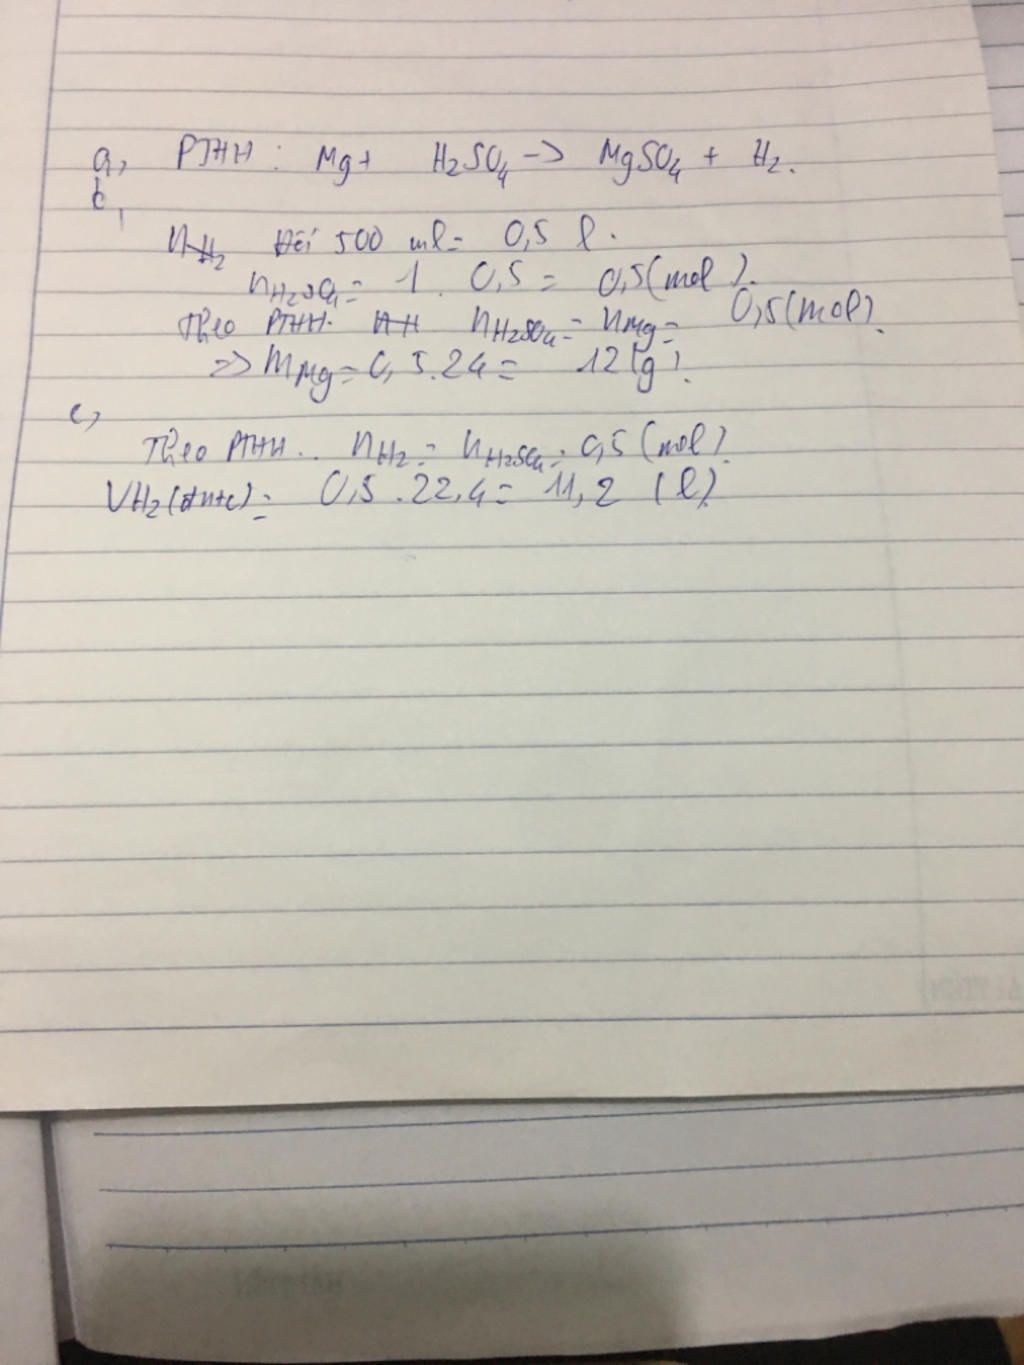 a, PTHH : Mg + H2SO4 -> MgSO4 + H2.
b,
nH2 Đổi 500 ml = 0,5 l.
nH2SO4 = 1 . 0,5 = 0,5 (mol).
Theo PTHH. nH2SO4 = nMg = 0,5 (mol).
=> mMg = 0,5.24 = 12 (g).
c,
Theo PTHH.. nH2 = nH2SO4 = 0,5 (mol).
VH2(đktc) = 0,5 .22,4 = 11,2 (l).